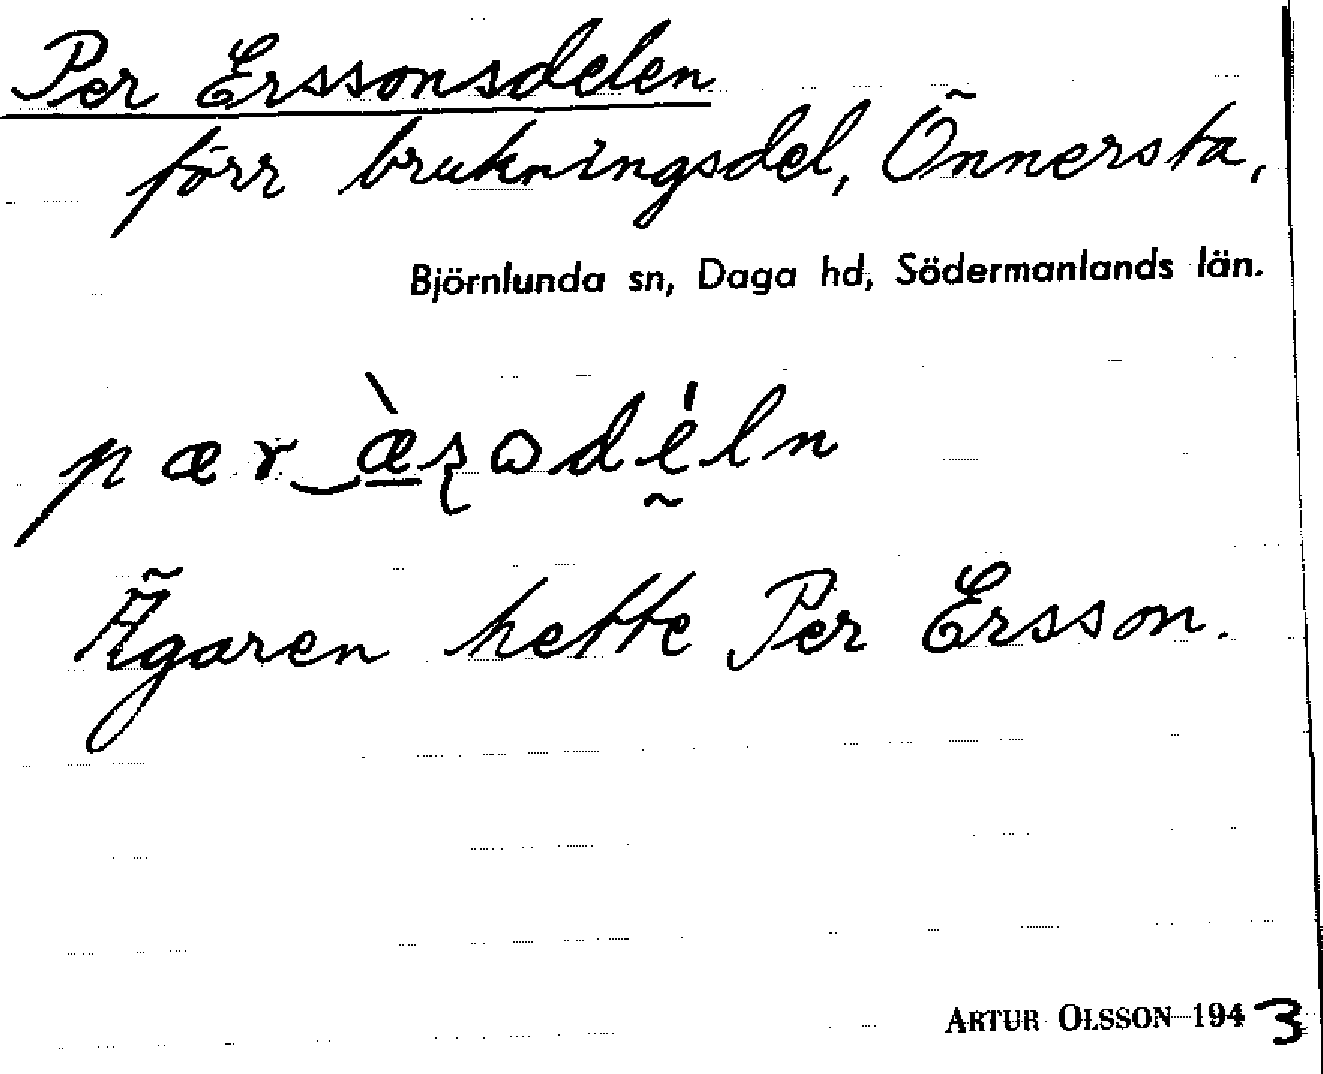 Per Erssonsdelen
förr brukningsdel, Önnersta,
Björnlunda sn, Daga hd, Södermanlands län.
pær‿æ̲̀ʂɷdḛ́ln
Ägaren hette Per Ersson.
ARTUR OLSSON 1943